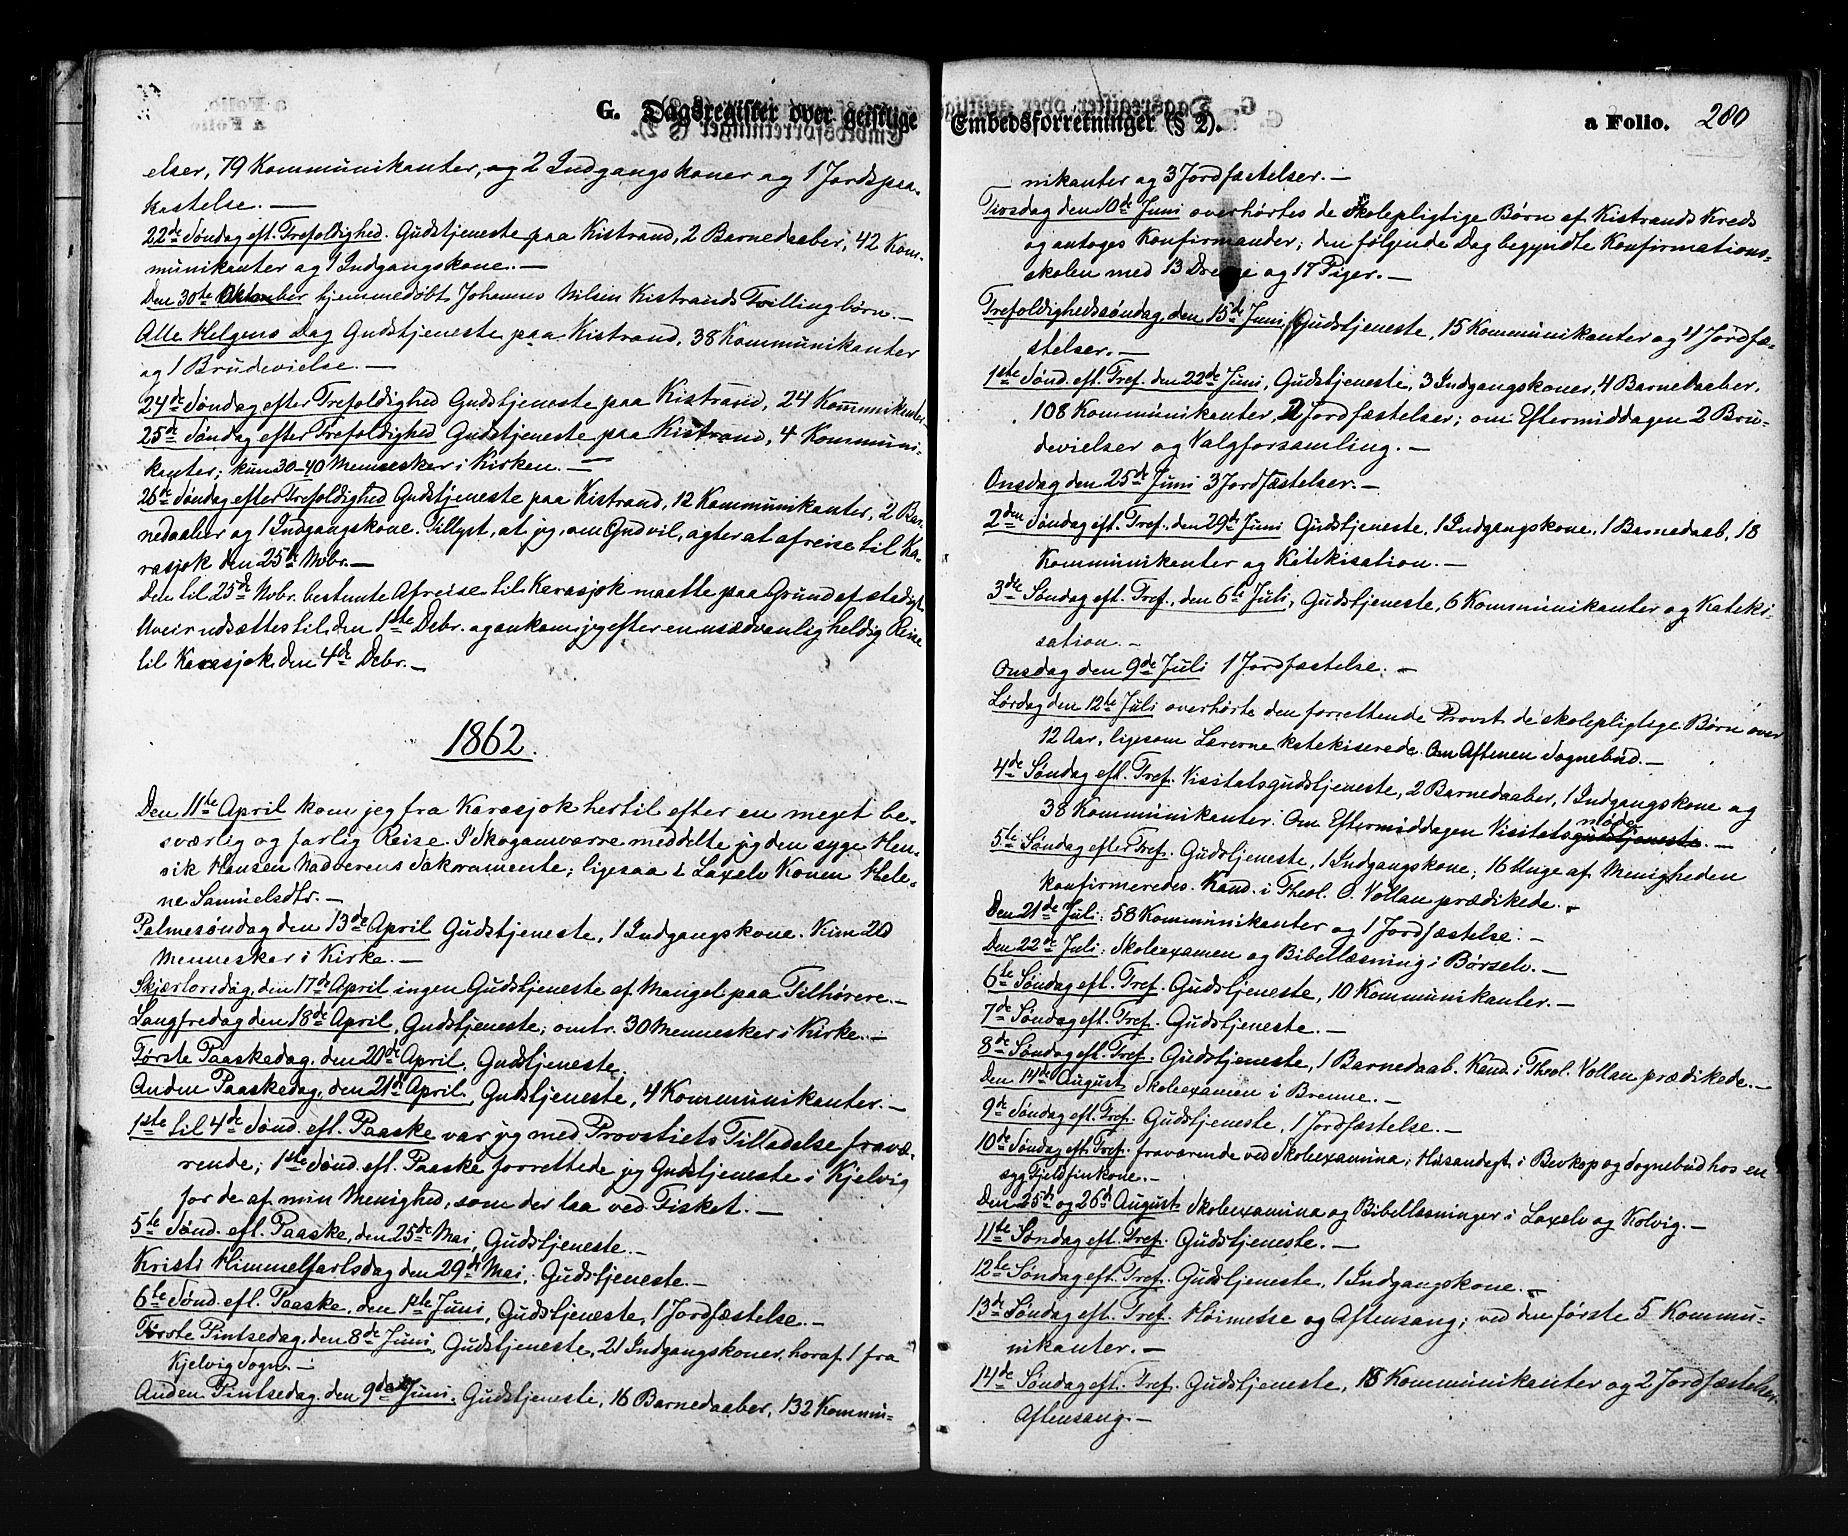 G. Dagsregister over geistlige
elser, 79 Kommunikanter, og 2 Indgangskoner og 1 Jordspaa-
kastelse. —
22de Søndag eft. Trefoldighed. Gudstjeneste paa Kistrand, 2 Barnedaaber, 42 Kom-
munikanter og 1 Indgangskone. —
Den 30te Oktober hjemmedøbt Johannes Nilsen Kistrands Tvillingbørn. —
Alle Helgens Dag Gudstjeneste paa Kistrand, 38 Kommunikanter
og 1 Brudevielse. —
24de Søndag efter Trefoldighed Gudstjeneste paa Kistrand, 24 Kommunikanter.
25de Søndag efter Trefoldighed Gudstjeneste paa Kistrand, 4 Kommuni-
kanter; kun 30-40 Mennesker i Kirken. —
26de Søndag efter Trefoldighed Gudstjeneste paa Kistrand, 12 Kommunikanter, 2 Bar-
nedaaber og 1 Indgangskone. Tillyst, at jeg, om Gud vil, agter at afreise til Ka-
rasjok den 25de Nvbr. —
Den til 25de Nvbr. bestemte Afreise til Karasjok maatte paa Grund af stadigt
Uveir udsættes til den 1ste Debr. og ankom jeg efter en usædvanlig heldig Reise
til Karasjok den 4de Debr. —
1862.
Den 11te April kom jeg fra Karasjok hertil efter en meget be-
sværlig og farlig Reise. I Skoganvarre meddelte jeg den syge Hen-
rik Hansen Nadverens Sakramente; ligesaa i Laxelv Konen Hele-
ne Samuelsdtr. —
Palmesøndag den 13de April Gudstjeneste, 1 Indgangskone. Kun 20
Mennesker i Kirke. —
Skjærtorsdag, den 17de April ingen Gudstjeneste af Mangel paa Tilhørere. —
Langfredag den 18de April, Gudstjeneste; omtr. 30 Mennesker i Kirke. —
Første Paaskedag, den 20de April, Gudstjeneste.
Anden Paaskedag, den 21de April, Gudstjeneste, 4 Kommunikanter. —
1ste til 4de Sønd. eft. Paaske var jeg med Provstiets Tilladelse fravæ-
rende; 1ste Sønd. eft. Paaske forrettede jeg Gudstjeneste i Kjelvig
for de af min Menighed, som der laa ved Fisket. —
5te Sønd. eft. Paaske, den 25de Mai, Gudstjeneste. —
Kristi Himmelfartsdag den 29de Mai, Gudstjeneste. —
6te Sønd. eft. Paaske, den 1ste Juni, Gudstjeneste, 1 Jordfæstelse. —
Første Pintsedag, den 8de Juni, Gudstjeneste, 21 Indgangskoner, horaf 1 fra
Kjelvig Sogn. —
Anden Pintsedag, den 9de Juni, Gudstjeneste, 16 Barnedaaber, 132 Kommu-
Embedsforretninger (§ 2). a Folio. 280
nikanter og 3 Jordfæstelser. —
Tirsdag den 10de Juni overhørtes de skolepligtige Børn af Kistrands Kreds
og antoges Konfirmander; den følgende Dag begyndte Konfirmations-
skolen med 13 Drenge og 17 Piger. —
Trefoldighedssøndag, den 15de Juni, Gudstjeneste, 15 Kommunikanter og 4 Jordfæ-
stelser. —
1ste Sønd. eft. Tref. den 22de Juni, Gudstjeneste, 3 Indgangskoner, 4 Barnedaaber,
108 Kommunikanter, 2 Jordfæstelser; om Eftermiddagen 2 Bru-
devielser og Valgforsamling. —
Onsdag den 25de Juni 3 Jordfæstelser. —
2den Søndag eft. Tref., den 29de Juni Gudstjeneste, 1 Indgangskone, 1 Barnedaab, 18
Kommunikanter og Katekisation. —
3die Søndag eft. Tref., den 6te Juli, Gudstjeneste, 6 Kommunikanter og Kateki-
sation. —
Onsdag den 9de Juli 1 Jordfæstelse. —
Lørdag den 12te Juli overhørte den forrettende Provst de skolepligtige Børn over
12 Aar, ligesom Lærerne katekiserede. Om Aftenen Sognebud. —
4de Søndag eft. Tref. Visitatsgudstjeneste, 2 Barnedaaber, 1 Indgangskone og
38 Kommunikanter. Om Eftermiddagen Visitatsgudstjeneste. —
møde
5te Søndag efter Tref. Gudstjeneste, 1 Indgangskone; 16 Unge af Menigheden
konfirmeredes. Kand. i Theol. O. Vollan prædikede. —
Den 21de Juli: 58 Kommunikanter og 1 Jordfæstelse. —
Den 22de Juli: Skoleexamen og Bibellæsning i Børselv. —
6te Søndag eft. Tref. Gudstjeneste, 10 Kommunikanter. —
7de Søndag eft. Tref. Gudstjeneste. —
8de Søndag eft. Tref. Gudstjeneste, 1 Barnedaab. Kand. i Theol. Vollan prædikede. —
Den 14de August Skoleexamen i Brenne. —
9de Søndag eft. Tref. Gudstjeneste, 1 Jordfæstelse. —
10de Søndag eft. Tref. fraværende ved Skoleexamina; Husandagt i Bevkop og Sognebud hos en
syg Fjeldfinkone. —
Den 25de og 26de August Skoleexamina og Bibellæsninger i Laxelv og Kolvig. —
11te Søndag eft. Tref. Gudstjeneste. —
12te Søndag eft. Tref. Gudstjeneste, 1 Indgangskone. —
13de Søndag eft. Tref. Høimesse og Aftensang; ved den første 5 Kommu-
nikanter. —
14de Søndag eft. Tref. Gudstjeneste, 18 Kommunikanter og 2 Jordfæstelser.
Aftensang. —